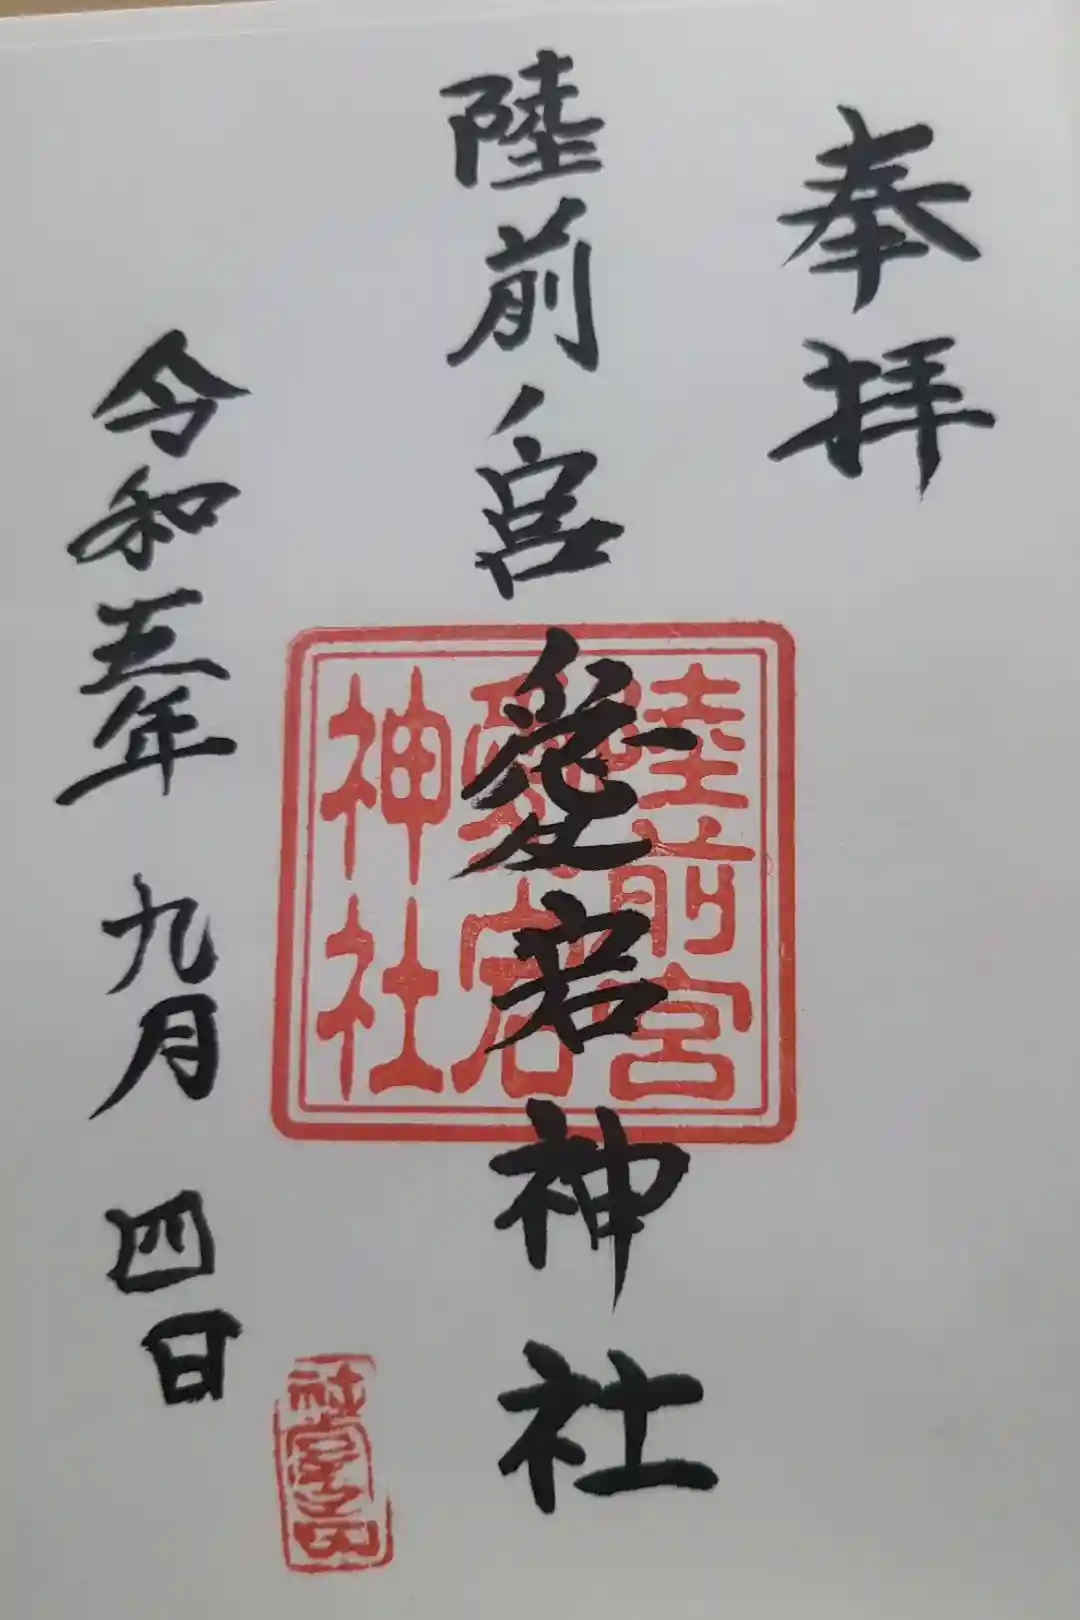 奉拝
陸前ノ宮愛宕神社
陸前宮
愛宕
神社
令和五年九月四日
社務所之印